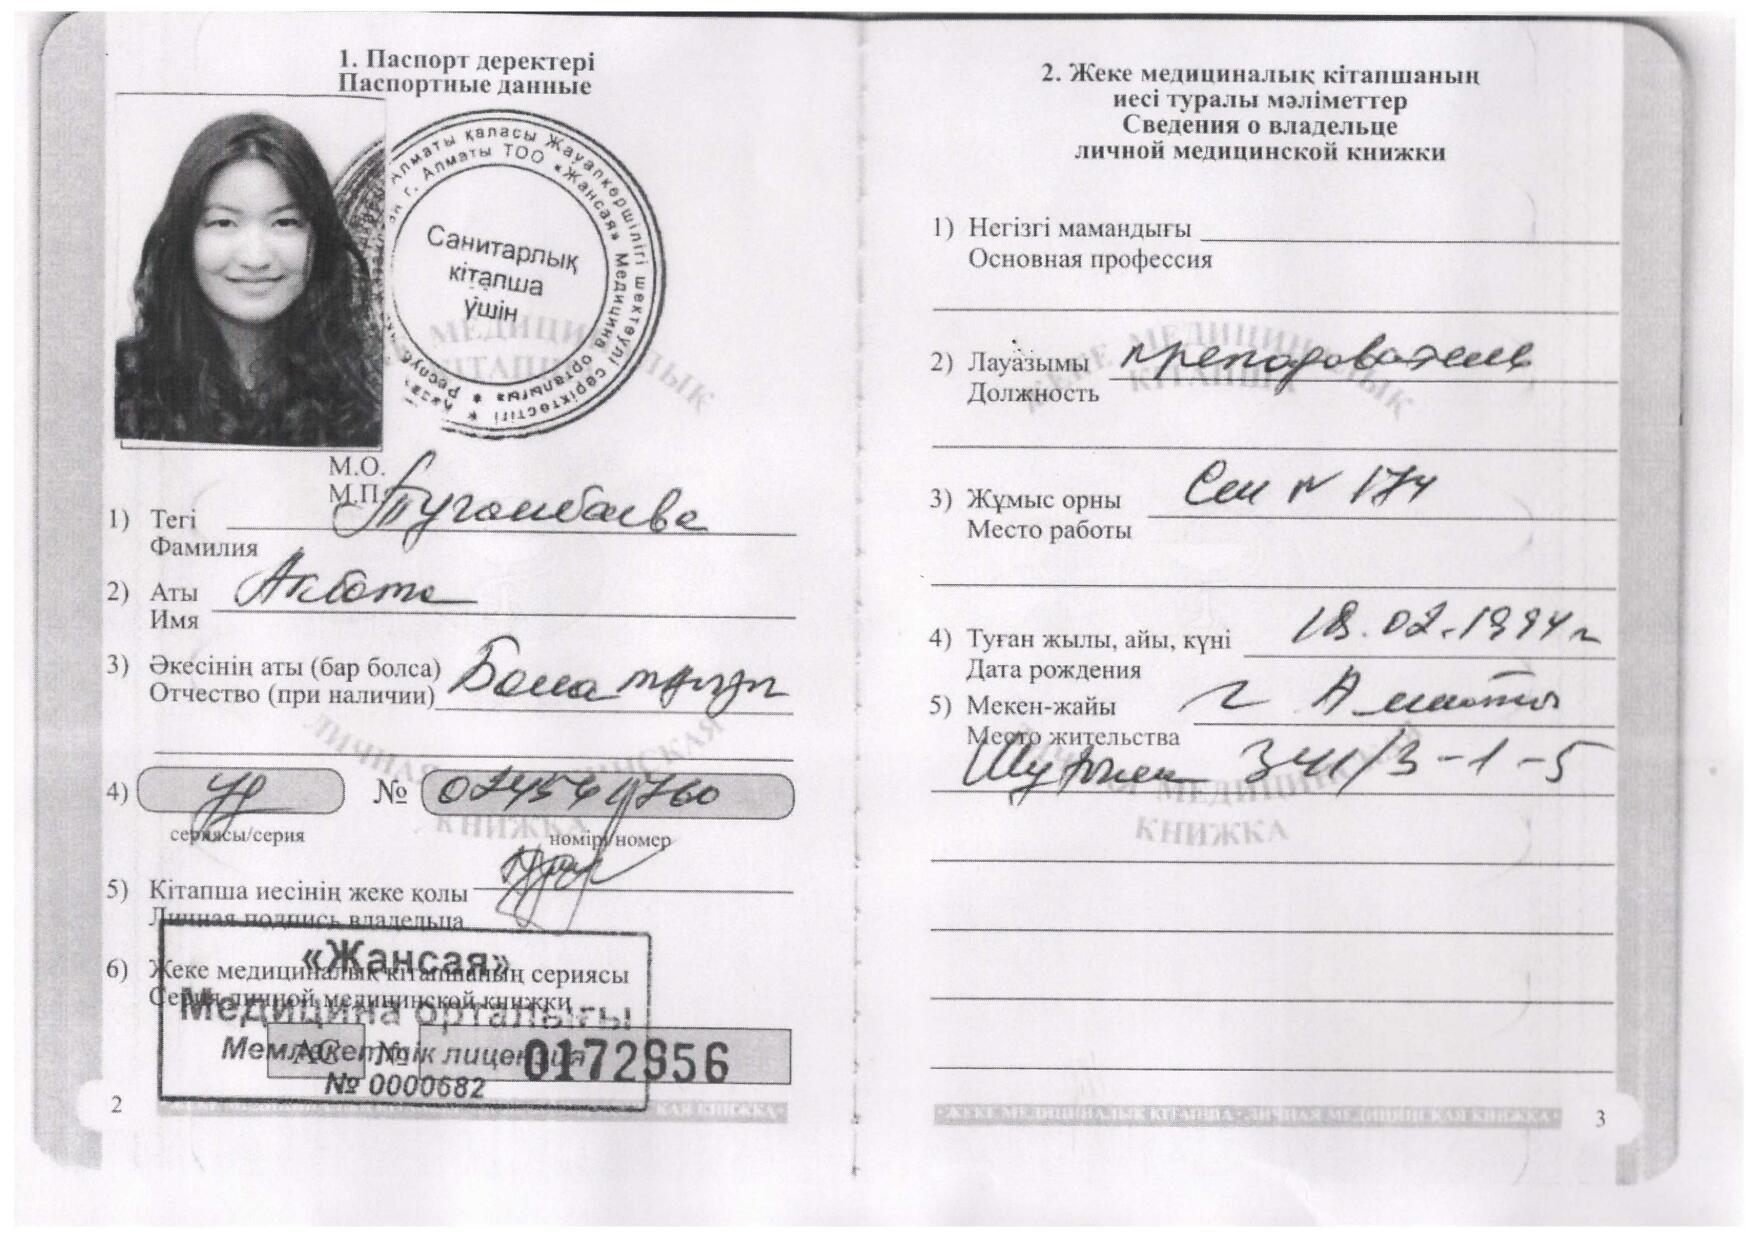 1. Паспорт деректері
Паспортные данные
Алматы қаласы Жауапкершілігі шектеулі серіктестігі
г. Алматы ТОО «Жансая» Медицина орталығы
Санитарлық
кітапша
үшін
М.О.
М.П.
1) Тегі Туганбаева
Фамилия
2) Аты Акбота
Имя
3) Әкесінің аты (бар болса)
Отчество (при наличии)
4) №
сериясы/серия номірі/номер
5) Кітапша иесінің жеке қолы
Личная подпись владельца
6) Жеке медициналық кітапшаның сериясы
Серия личной медицинской книжки
АС № 0172956
«Жансая»
Медицина орталығы
Мемлекеттік лицензия
№ 0000682
2
2. Жеке медициналық кітапшаның
иесі туралы мәліметтер
Сведения о владельце
личной медицинской книжки
1) Негізгі мамандығы
Основная профессия
2) Лауазымы преподаватель
Должность
3) Жұмыс орны № 174
Место работы
4) Туған жылы, айы, күні 18.02.1994 г
Дата рождения
5) Мекен-жайы г Алматы
Место жительства
341/3-1-5
ЖЕКЕ МЕДИЦИНАЛЫҚ
КІТАПША
ЛИЧНАЯ МЕДИЦИНСКАЯ
КНИЖКА
ЖЕКЕ МЕДИЦИНАЛЫҚ КІТАПША · ЛИЧНАЯ МЕДИЦИНСКАЯ КНИЖКА
3